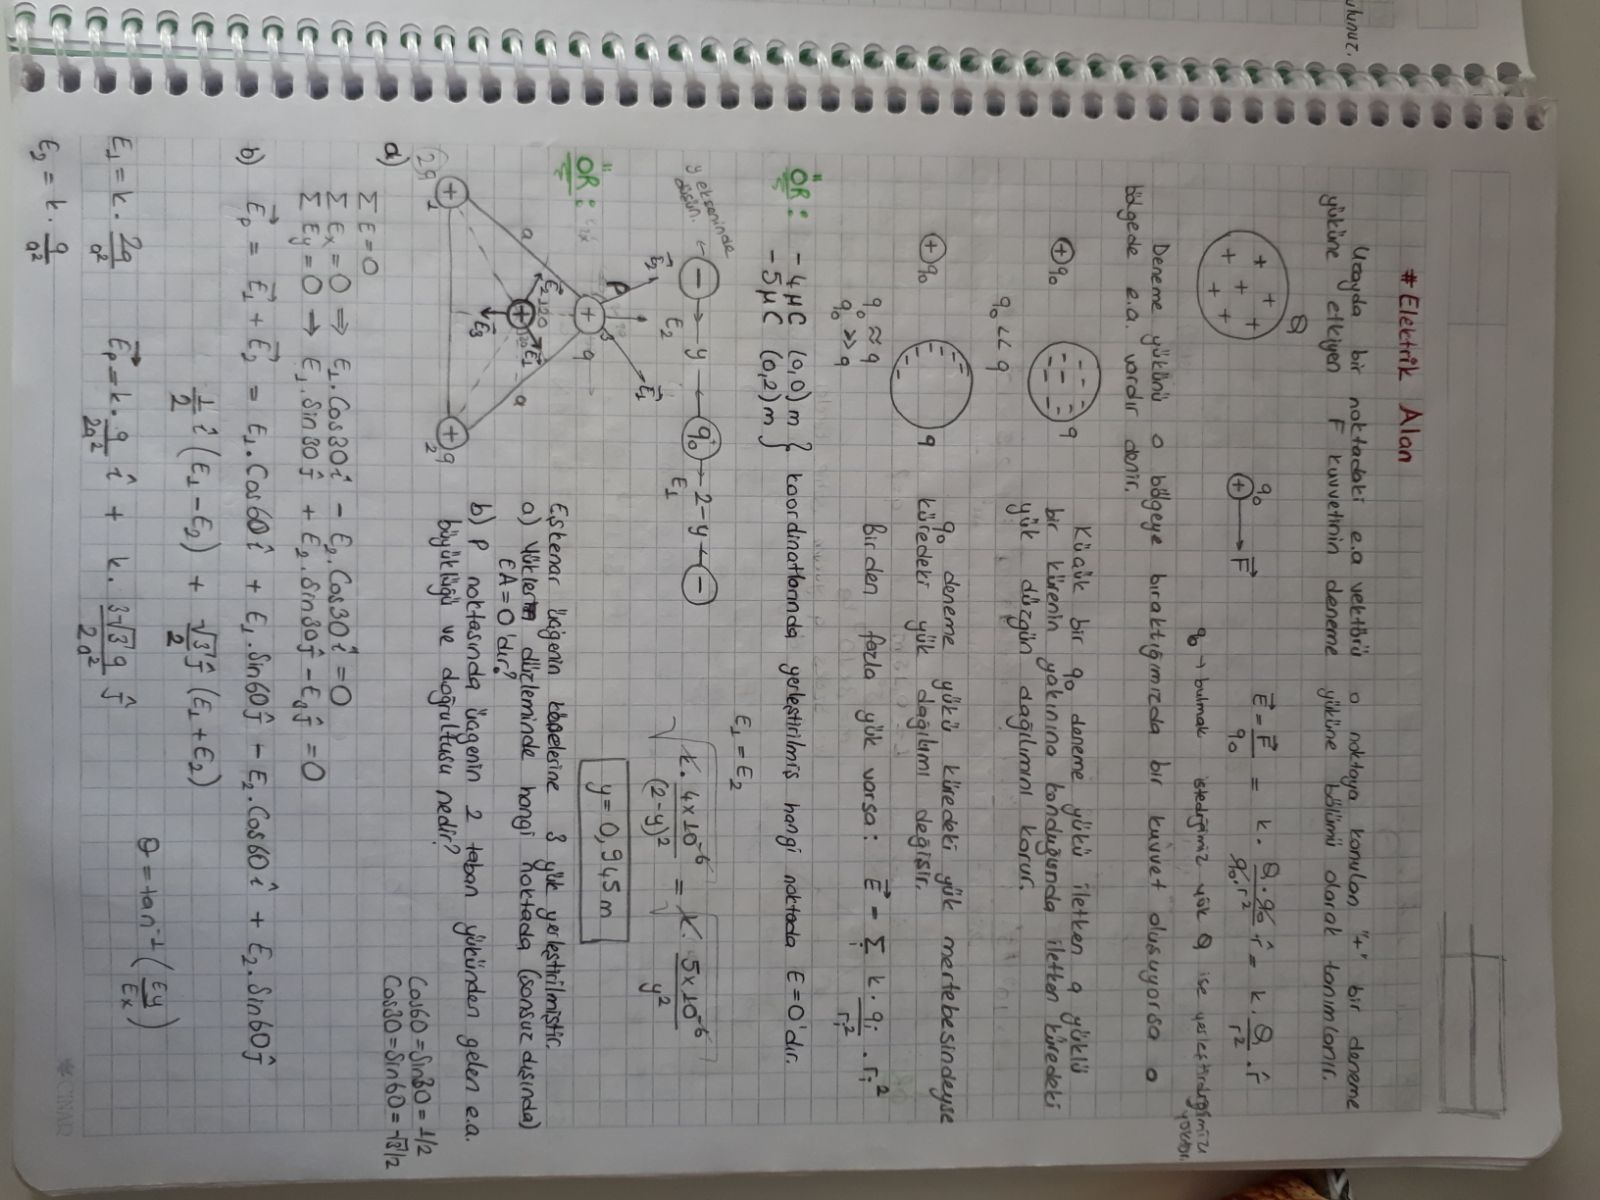 ulunuz.
# Elektrik Alan
Uzayda bir noktadaki e.a vektörü o noktaya konulan "+" bir deneme
yüküne etkiyen F kuvvetinin deneme yüküne bölümü olarak tanımlanır.
Q
q₀ F⃗
E⃗ = F⃗/q₀ = k · Q·q₀/q₀·r² r̂ = k · Q/r² · r̂
q₀ → bulmak istediğimiz yük Q ise yerleştirdiğimiz
yüktür.
Deneme yükünü o bölgeye bıraktığımızda bir kuvvet oluşuyorsa o
bölgede e.a. vardır denir.
+ q₀ q
Küçük bir q₀ deneme yükü iletken q yüklü
bir kürenin yakınına konduğunda iletken küredeki
yük düzgün dağılımını korur.
q₀ << q
+ q₀ q
q₀ deneme yükü küredeki yük mertebesindeyse
küredeki yük dağılımı değişir.
q₀ ≈ q
q₀ >> q
Birden fazla yük varsa: E⃗ = Σᵢ k · qᵢ/rᵢ² · rᵢ²
ÖR: -4μC (0,0) m } koordinatlarında yerleştirilmiş hangi noktada E=0'dır.
-5μC (0,2) m
E₁ = E₂
y ekseninde
düşün.
− y q₀⁺ 2-y −
E₂ E₁
√(k · 4x10⁻⁶/(2-y)²) = √(k · 5x10⁻⁶/y²)
y = 0,945 m
E⃗₂ E⃗₁
P
ÖR: 3 + q
E⃗₂ 120 E⃗₁
120
a a
E⃗₃
2q + 1 + 2 q
Eşkenar üçgenin köşelerine 3 yük yerleştirilmiştir.
a) Yükler düzleminde hangi noktada (sonsuz dışında)
EA=0'dır?
b) P noktasında üçgenin 2 taban yükünden gelen e.a.
büyüklüğü ve doğrultusu nedir?
Cos60 = Sin30 = 1/2
Cos30 = Sin60 = √3/2
a)
Σ E = 0
Σ Ex = 0 ⇒ E₁.Cos30 î − E₂.Cos30 î = 0
Σ Ey = 0 → E₁.Sin30 ĵ + E₂.Sin30 ĵ − E₃ ĵ = 0
b) E⃗p = E⃗₁ + E⃗₂ = E₁.Cos60 î + E₁.Sin60 ĵ − E₂.Cos60 î + E₂.Sin60 ĵ
1/2 î (E₁ − E₂) + √3/2 ĵ (E₁ + E₂)
θ = tan⁻¹ (Ey/Ex)
E₁ = k · 2q/a² E⃗p = k · q/2a² î + k · 3√3 q/2a² ĵ
E₂ = k · q/a²
ÇINAR